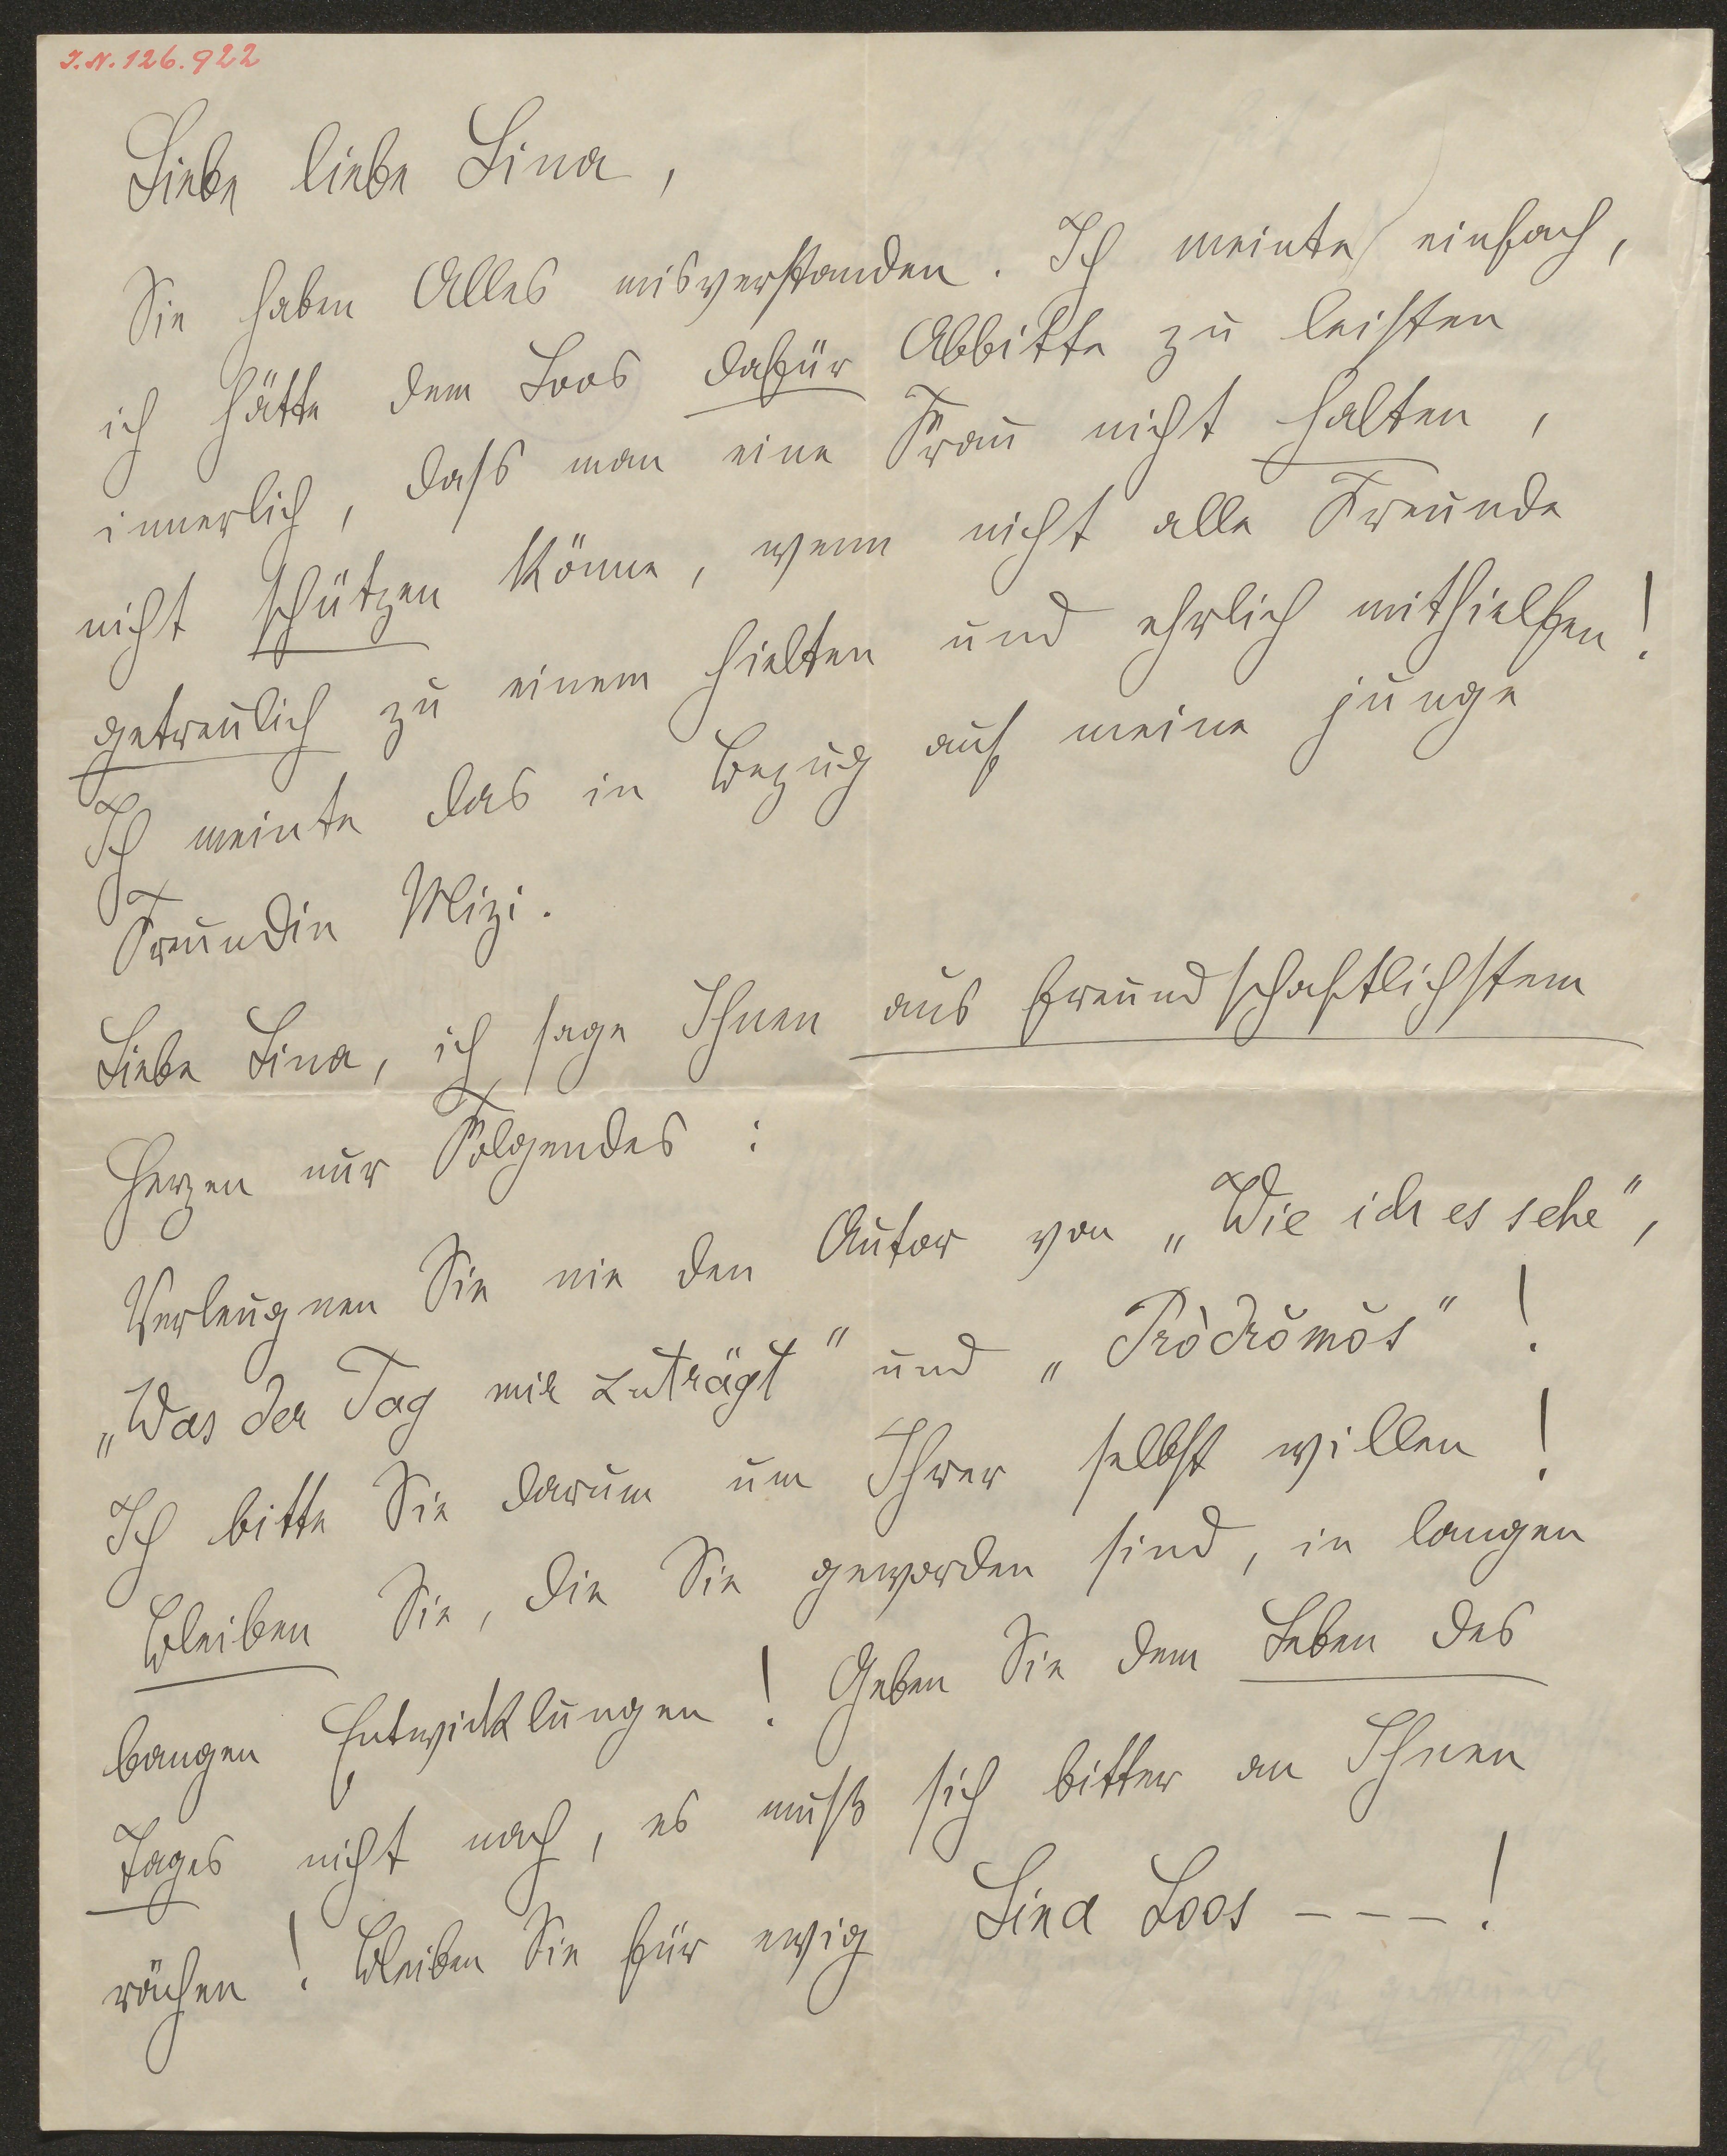 I.N. 126.922
Liebe liebe Lina,
Sie haben Alles misverstanden. Ich meinte einfach,
ich hätte dem Loos dafür Abbitte zu leisten
innerlich, dass man eine Frau nicht halten,
nicht schützen könne, wenn nicht alle Freunde
getreulich zu einem hielten und ehrlich mithielfen!
Ich meinte das in Bezug auf meine junge
Freundin Mizi.
Liebe Lina, ich sage Ihnen aus freundschaftlichstem
Herzen nur Folgendes:
Verleugnen Sie nie den Autor von „Wie ich es sehe",
„Was der Tag mir zuträgt" und „Pròdrŏmŏs"!
Ich bitte Sie darum um Ihrer selbst willen!
Bleiben Sie, die Sie geworden sind, in langen
bangen Entwicklungen! Geben Sie dem Leben des
Tages nicht nach, es muß sich bitter an Ihnen
rächen! Bleiben Sie für ewig Lina Loos - - - !